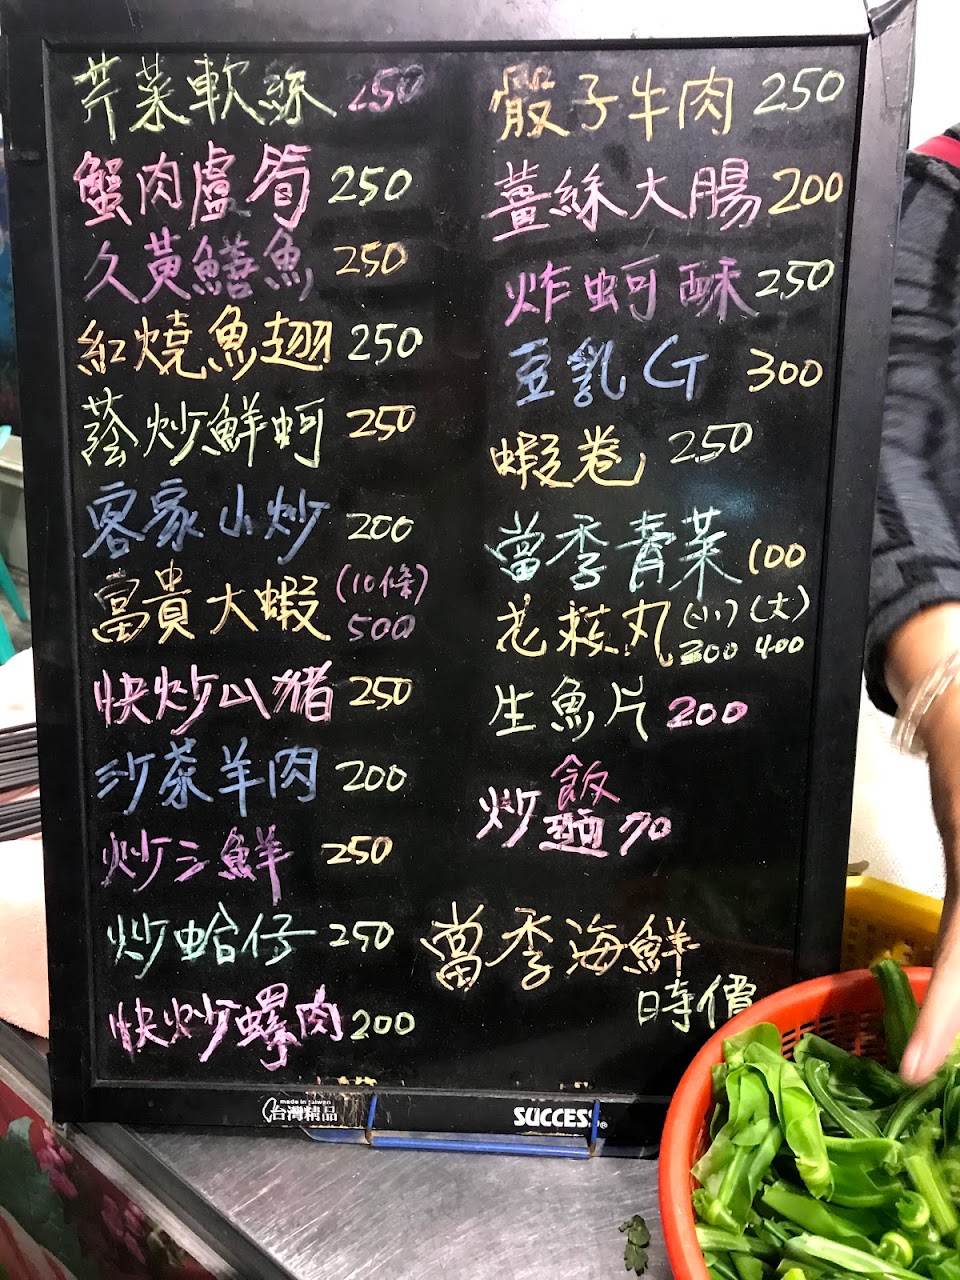 芹菜軟絲 250
蟹肉盧筍 250
久黃鱔魚 250
紅燒魚翅 250
蔭炒鮮蚵 250
客家小炒 200
富貴大蝦 (10條) 500
快炒山豬 250
沙茶羊肉 200
炒三鮮 250
炒蛤仔 250
快炒螺肉 200
骰子牛肉 250
薑絲大腸 200
炸蚵酥 250
豆乳G 300
蝦卷 250
當季青菜 100
花枝丸 (小) 300 (大) 400
生魚片 200
炒飯麵 70
當季海鮮
時價
made in taiwan
台灣精品
SUCCESS®